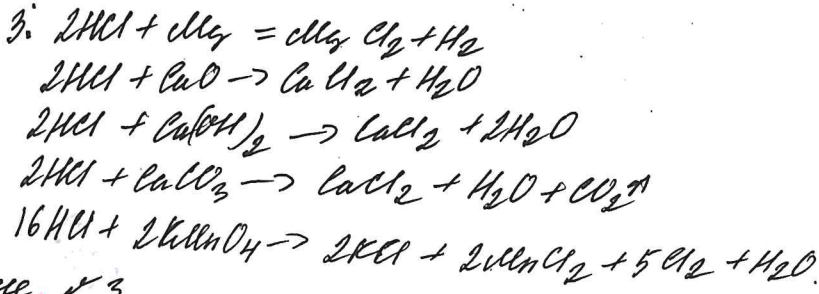 3. 2HCl + Mg = MgCl₂ + H₂
2HCl + CaO → CaCl₂ + H₂O
2HCl + Ca(OH)₂ → CaCl₂ + 2H₂O
2HCl + CaCO₃ → CaCl₂ + H₂O + CO₂↑
16HCl + 2KMnO₄ → 2KCl + 2MnCl₂ + 5Cl₂ + H₂O.